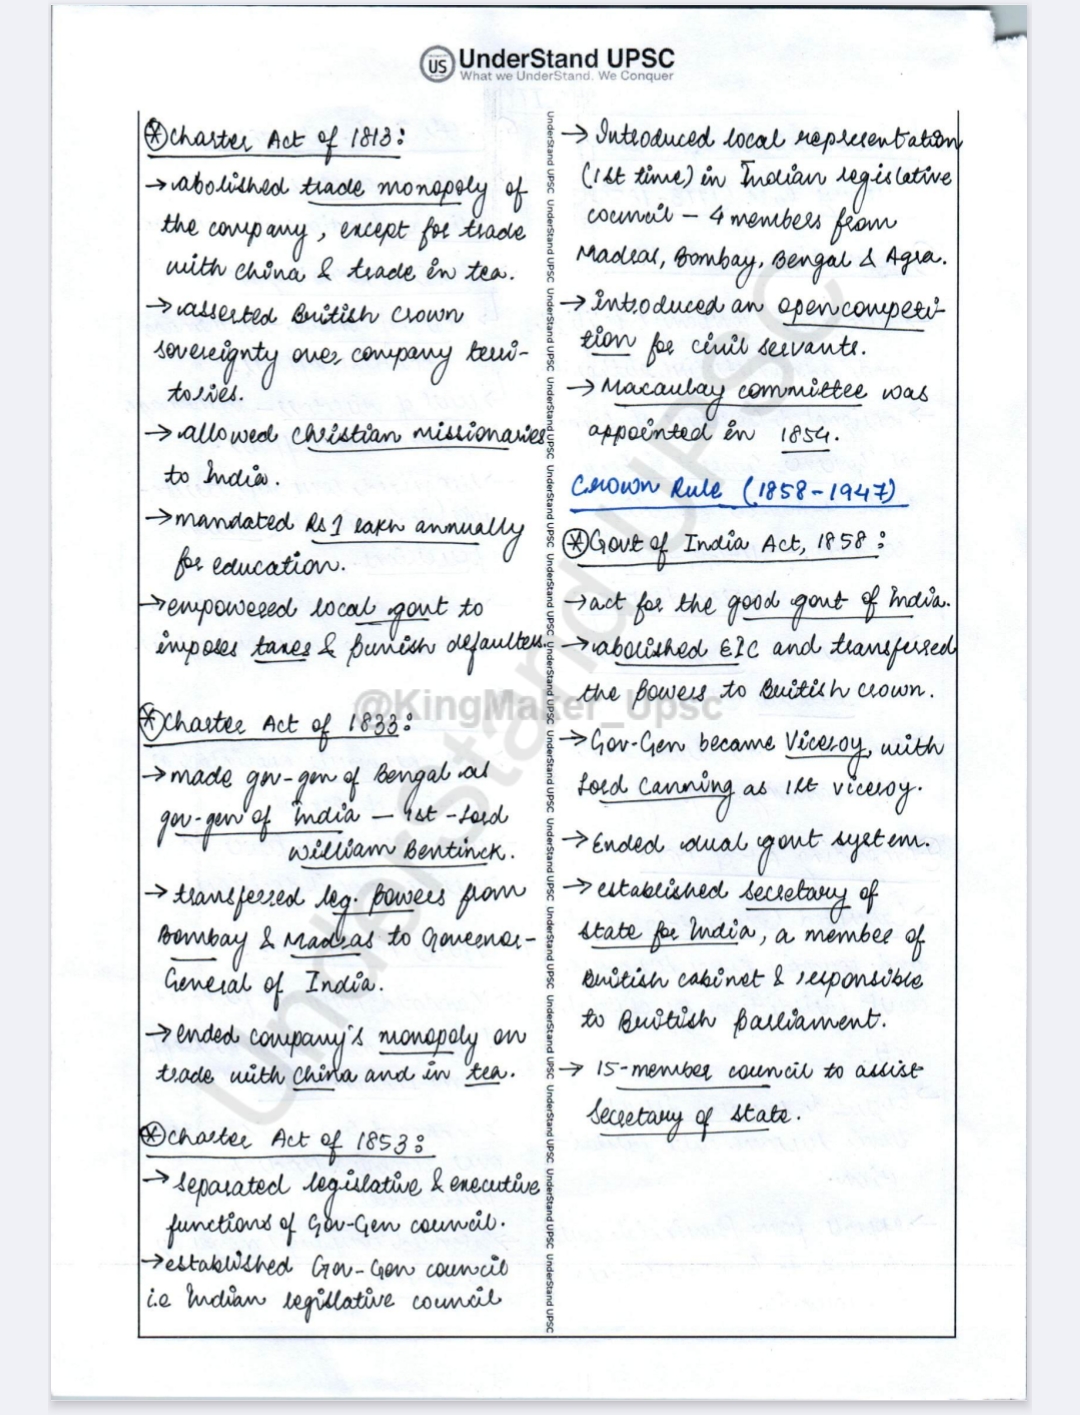 US UnderStand UPSC
What we UnderStand. We Conquer
* Charter Act of 1813:
→ abolished trade monopoly of
the company, except for trade
with china & trade in tea.
→ asserted British Crown
sovereignty over company terri-
tories.
→ allowed christian missionaries
to India.
→ mandated Rs 1 lakh annually
for education.
→ empowered local govt to
imposes taxes & punish defaulters.
* Charter Act of 1833:
→ made gov-gen of Bengal as
gov-gen of India – 1st - Lord
William Bentinck.
→ transferred leg. powers from
Bombay & Madras to Governor-
General of India.
→ ended company's monopoly on
trade with China and in tea.
* Charter Act of 1853:
→ separated legislative & executive
functions of Gov-Gen council.
→ established Gov-Gen council
i.e Indian legislative council
→ Introduced local representation
(1st time) in Indian legislative
council – 4 members from
Madras, Bombay, Bengal & Agra.
→ introduced an open competi-
tion for civil servants.
→ Macaulay committee was
appointed in 1854.
Crown Rule (1858-1947)
* Govt of India Act, 1858:
→ act for the good govt of India.
→ abolished EIC and transferred
the powers to British crown.
→ Gov-Gen became Viceroy, with
Lord Canning as 1st viceroy.
→ Ended dual govt system.
→ established secretary of
state for India, a member of
British cabinet & responsible
to British parliament.
→ 15-member council to assist
secretary of state.
@KingMaker_Upsc
UnderStand UPSC
UnderStand UPSC UnderStand UPSC UnderStand UPSC UnderStand UPSC UnderStand UPSC UnderStand UPSC UnderStand UPSC UnderStand UPSC UnderStand UPSC UnderStand UPSC UnderStand UPSC UnderStand UPSC UnderStand UPSC UnderStand UPSC